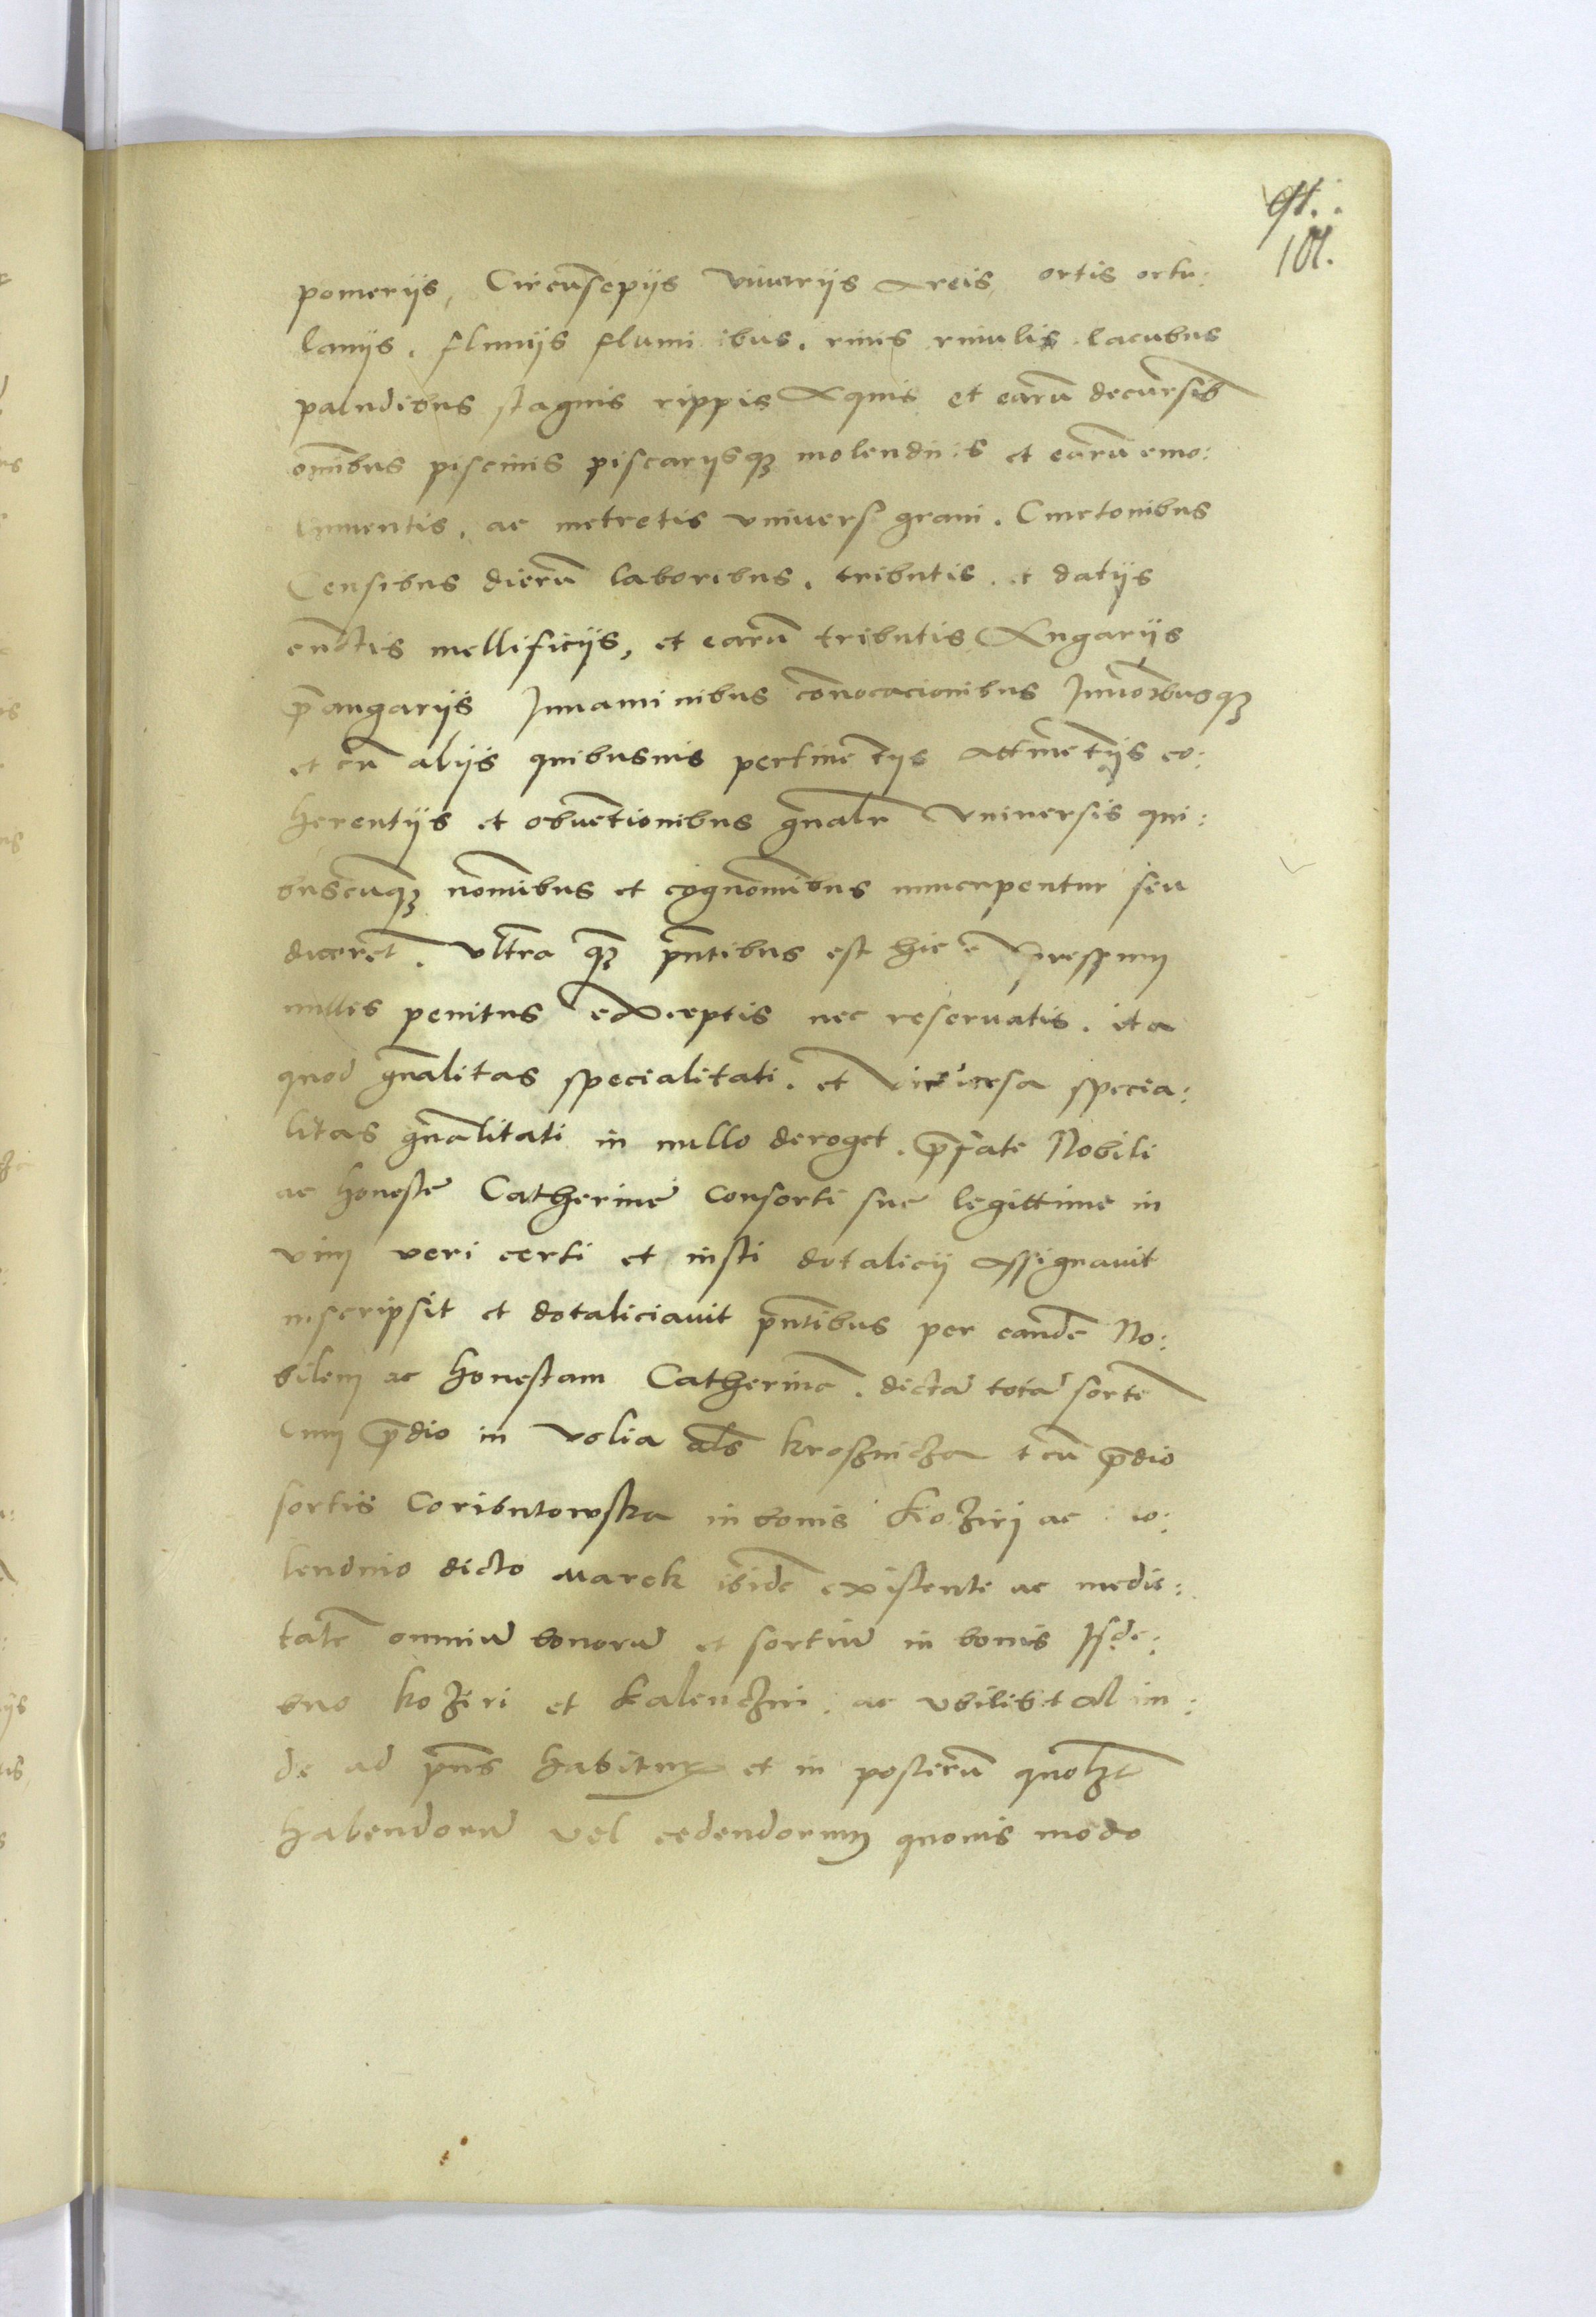 91.
101.
pomeriis, Circūsepiis viuariis Areis, ortis ortu:
laniis. fluuiis flumi ibus. riuis riuulis lacubus
paludibus stagnis rippis Aquis et earū decursib
oībus piscinis piscariisqȝ molendinis et earū emo:
lumentis. ac metretis vniuersi grani. Cmetonibus
Censibus dierū laboribus. tributis. et datiis
cūctis mellificiis, et earū tributis Angariis
p̄angariis Iuuaminibus cōuocacionibus
et cū aliis quibusuis pertinētiis attinētiis co:
herentiis et obuētionibus gn̄alr vniuersis qui:
buscūqȝ nōmībus et cognōmībus nuncupentur seu
dicerēt. vltra qȝ pn̄tibus est hic expressum
nulles penitus exceptis nec reseruatis. ita
quod gn̄alitas specialitati. et viceuersa specia:
litas gn̄alitati in nullo deroget. p̄fate Nobili
ac honeste Catherine consorti sue legittime in
vim veri certi et iusti dotalicii assignauit
inscripsit et dotaliciauit pn̄tibus per eandē No:
bilem ac honestam Catherinā. dictā totā sortē
cum p̄dio in volia als̄ krosznicza t cū p̄dio
sortis Coributowska in bonis Koziri ac mo:
lendino dicto Marek ibidē existente ac medie:
tatē omniū bonorū et sortiū in bonis Isde:
bno koziri et kalenczini. ac vbilibet alin:
de ad pn̄s habitur et in posterū quolȝt
habendorū vel cedendorum quouis modo